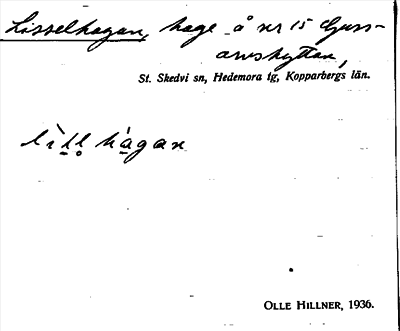 Lisselhagan, hage å nr 15 Ljus-
arshyttan,
St. Skedvi sn, Hedemora tg, Kopparbergs län.
lìtl hágan
OLLE HILLNER, 1936.